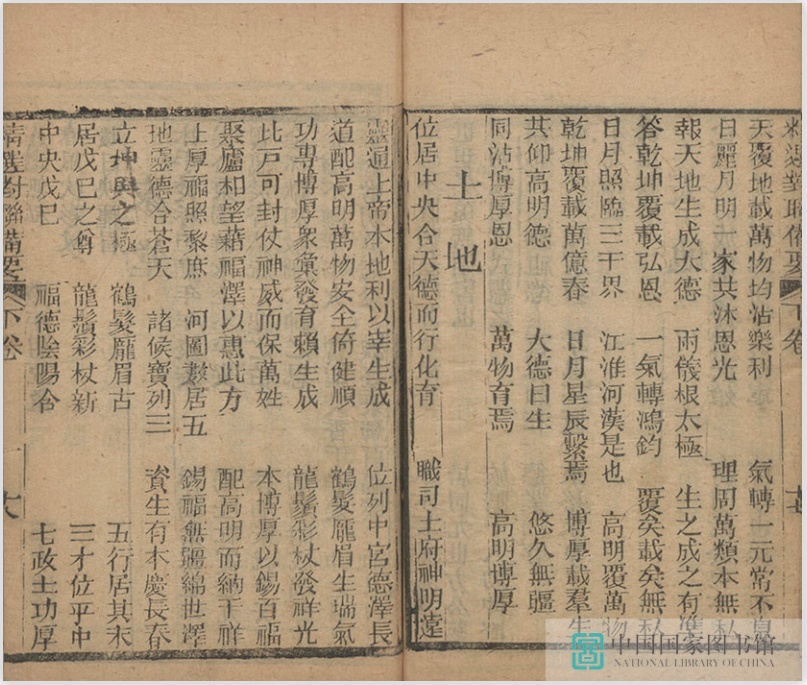 精選對聯備要 下卷
天覆地載萬物均沾樂利 氣轉一元常不息
日麗月明一家共沐恩光 理周萬類本無私
報天地生成大德 兩儀根太極 生之成之有準
答乾坤覆載弘恩 一氣轉鴻鈞 覆矣載矣無私
日月照臨三千界 江淮河漢是也 高明覆萬物
乾坤覆載萬億春 日月星辰繫焉 博厚載羣生
共仰高明德 大德曰生 悠久無疆
同沾博厚恩 萬物育焉 高明博厚
土地
位居中央合天德而行化育 職司土府神明遠
靈通上帝本地利以宰生成 位列中宮德澤長
道配高明萬物安全倚健順 鶴髮龎眉生瑞氣
功專博厚衆彙發育賴生成 龍鬚彩杖發祥光
比戸可封仗神威而保萬姓 本博厚以錫百福
聚廬相望藉福澤以惠此方 配高明而納千祥
上厚福照黎庶 河圖數居五 錫福無疆綿世澤
地靈德合蒼天 諸候寶列三 資生有本慶長春
立坤輿之極 鶴髮龎眉古 五行居其末
居戊巳之尊 龍鬚彩杖新 三才位乎中
中央戊巳 福德陰陽合 七政土功厚
精選對聯備要 下卷
中国国家图书馆
NATIONAL LIBRARY OF CHINA